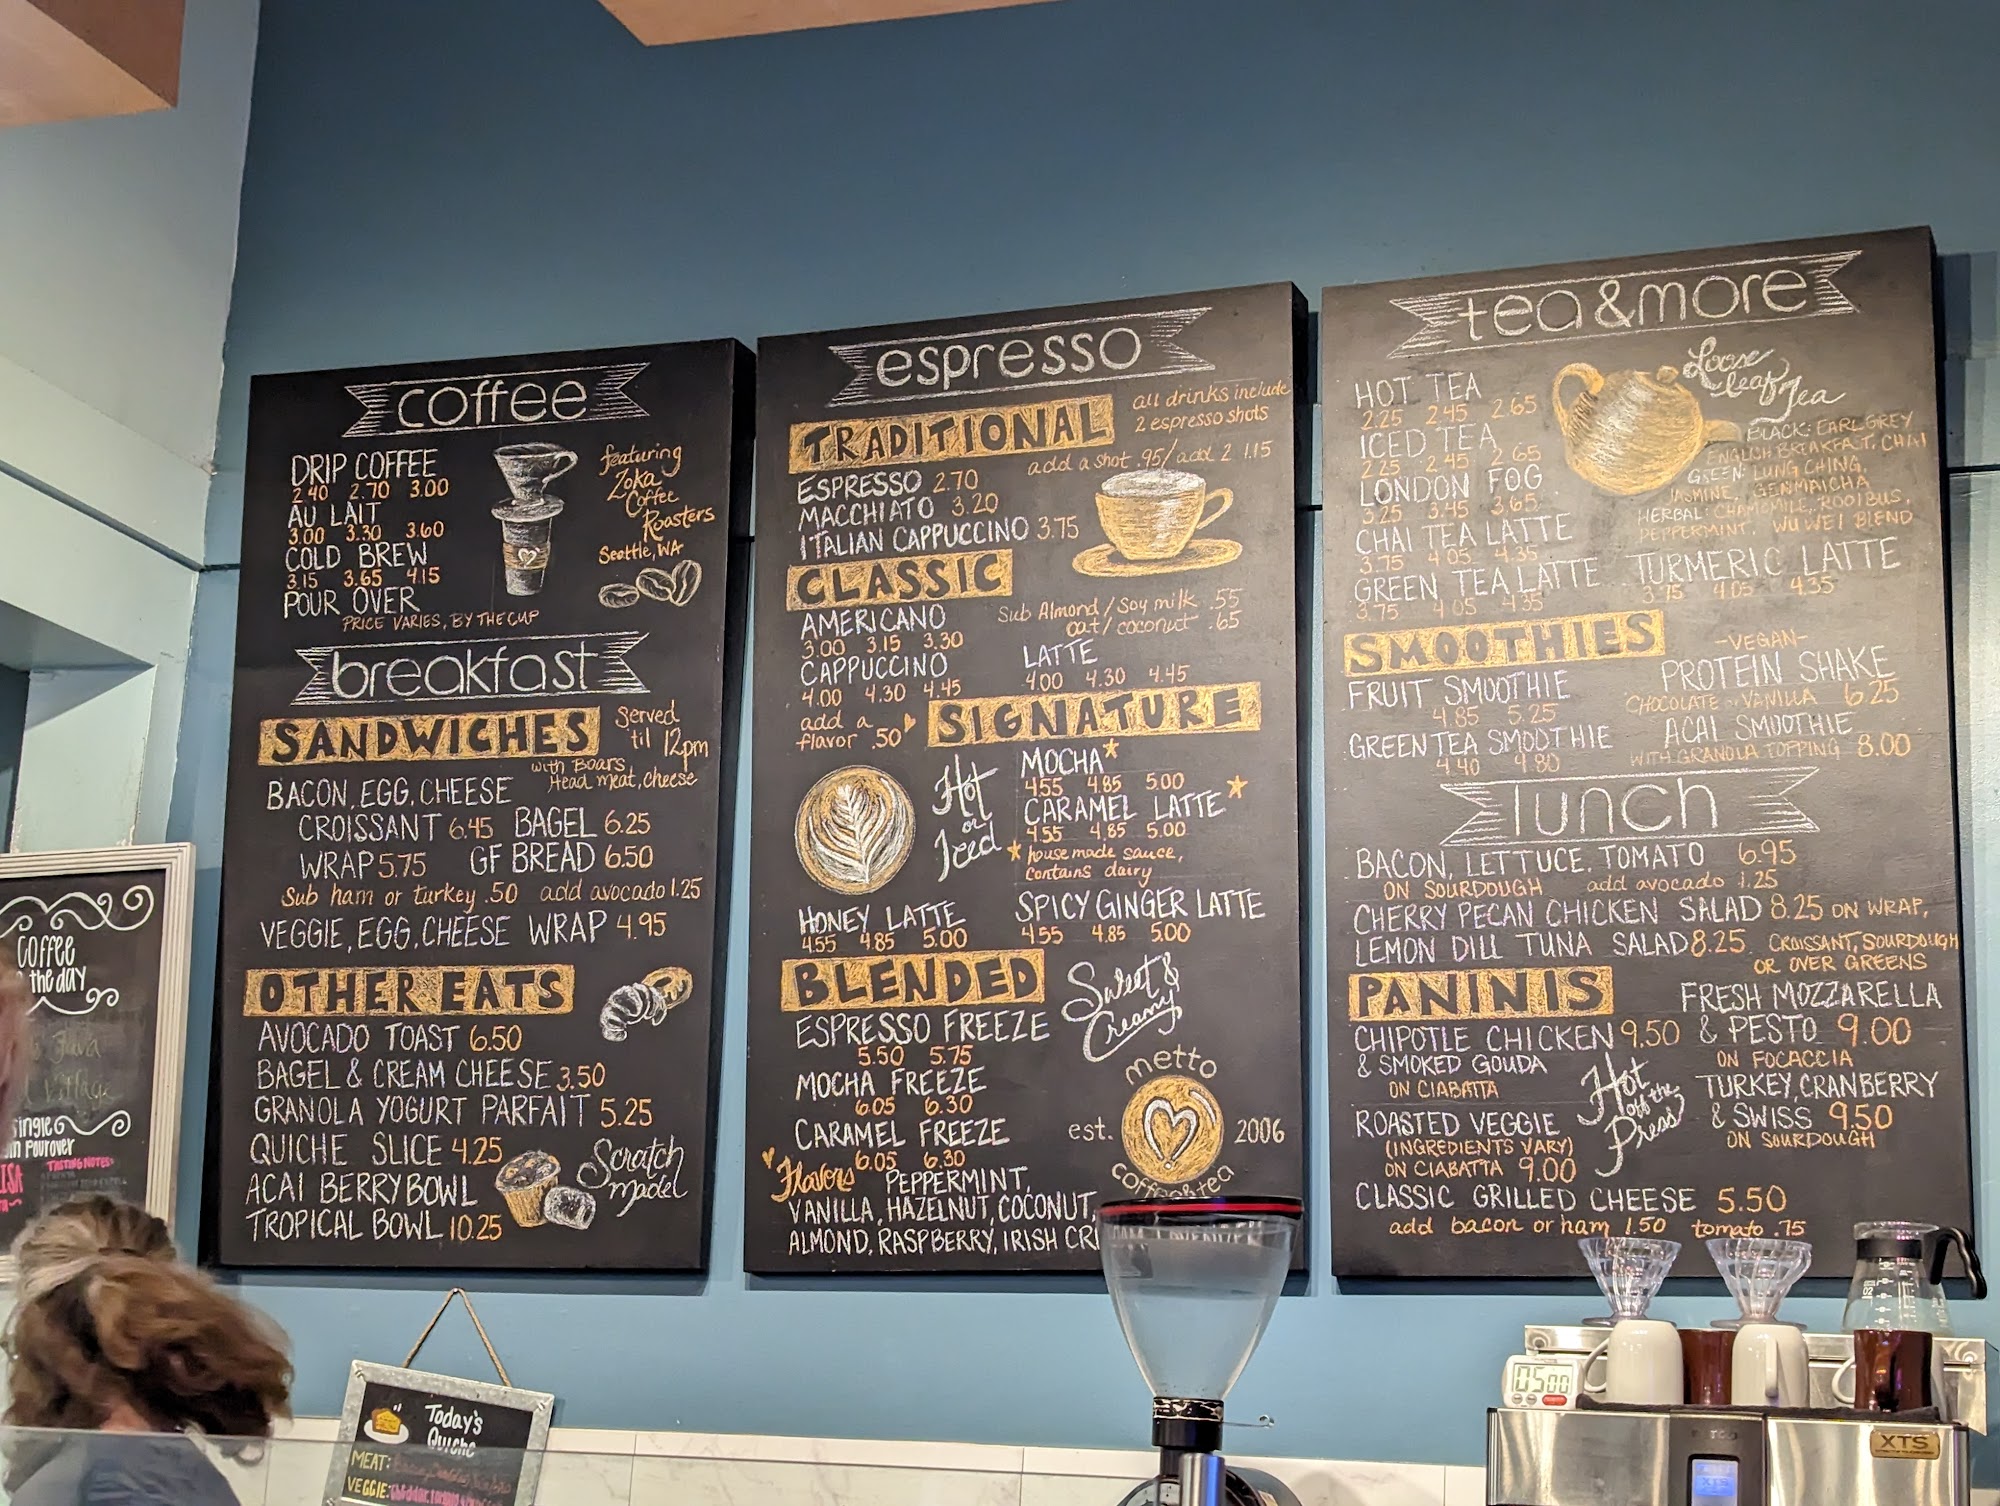 coffee
DRIP COFFEE
2.40 2.70 3.00
AU LAIT
3.00 3.30 3.60
COLD BREW
3.15 3.65 4.15
POUR OVER
PRICE VARIES, BY THE CUP
featuring
Zoka
Coffee
Roasters
Seattle, WA
breakfast
SANDWICHES
served
til 12pm
with Boars
Head meat, cheese
BACON, EGG, CHEESE
CROISSANT 6.45 BAGEL 6.25
WRAP 5.75 GF BREAD 6.50
Sub ham or turkey .50 add avocado 1.25
VEGGIE, EGG, CHEESE WRAP 4.95
OTHER EATS
AVOCADO TOAST 6.50
BAGEL & CREAM CHEESE 3.50
GRANOLA YOGURT PARFAIT 5.25
QUICHE SLICE 4.25
ACAI BERRY BOWL
TROPICAL BOWL 10.25
Scratch
made!
espresso
all drinks include
2 espresso shots
TRADITIONAL
add a shot .95/add 2 1.15
ESPRESSO 2.70
MACCHIATO 3.20
ITALIAN CAPPUCCINO 3.75
CLASSIC
Sub Almond/Soy milk .55
oat/coconut .65
AMERICANO
3.00 3.15 3.30
CAPPUCCINO
4.00 4.30 4.45
LATTE
4.00 4.30 4.45
add a
flavor .50
SIGNATURE
Hot
or
Iced
MOCHA*
4.55 4.85 5.00
CARAMEL LATTE*
4.55 4.85 5.00
* house made sauce,
contains dairy
HONEY LATTE
4.55 4.85 5.00
SPICY GINGER LATTE
4.55 4.85 5.00
BLENDED
Sweet &
Creamy
ESPRESSO FREEZE
5.50 5.75
MOCHA FREEZE
6.05 6.30
CARAMEL FREEZE
6.05 6.30
metto
est. 2006
coffee & tea
Flavors PEPPERMINT,
VANILLA, HAZELNUT, COCONUT,
ALMOND, RASPBERRY, IRISH CR
tea & more
Loose
leaf
Tea
HOT TEA
2.25 2.45 2.65
ICED TEA
2.25 2.45 2.65
LONDON FOG
3.25 3.45 3.65
CHAI TEA LATTE
3.75 4.05 4.35
GREEN TEA LATTE
3.75 4.05 4.35
BLACK: EARL GREY
ENGLISH BREAKFAST, CHAI
GREEN: LUNG CHING,
JASMINE, GENMAICHA
HERBAL: CHAMOMILE, ROOIBUS,
PEPPERMINT, WU WEI BLEND
TURMERIC LATTE
3.75 4.05 4.35
SMOOTHIES
FRUIT SMOOTHIE
4.85 5.25
GREEN TEA SMOOTHIE
4.40 4.80
-VEGAN-
PROTEIN SHAKE
CHOCOLATE or VANILLA 6.25
ACAI SMOOTHIE
WITH GRANOLA TOPPING 8.00
lunch
BACON, LETTUCE, TOMATO 6.95
ON SOURDOUGH add avocado 1.25
CHERRY PECAN CHICKEN SALAD 8.25 ON WRAP,
LEMON DILL TUNA SALAD 8.25 CROISSANT, SOURDOUGH
OR OVER GREENS
PANINIS
CHIPOTLE CHICKEN 9.50
& SMOKED GOUDA
ON CIABATTA
ROASTED VEGGIE
(INGREDIENTS VARY)
ON CIABATTA 9.00
Hot
off the
Press
FRESH MOZZARELLA
& PESTO 9.00
ON FOCACCIA
TURKEY, CRANBERRY
& SWISS 9.50
ON SOURDOUGH
CLASSIC GRILLED CHEESE 5.50
add bacon or ham 1.50 tomato .75
Coffee
the day
single
Pourover
TASTING NOTES:
Today's
Quiche
MEAT:
VEGGIE:
0500
XTS